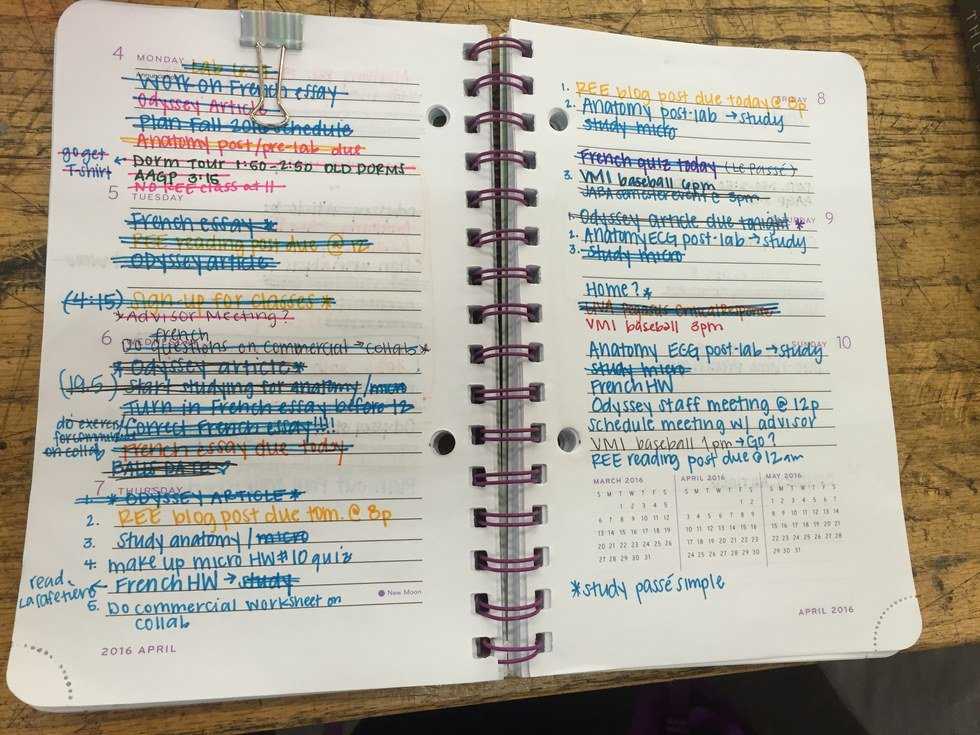 4 MONDAY
Work on French essay
Odyssey Article
Plan Fall 2016 schedule
Anatomy post/pre-lab due
go get T-shirt ← Dorm Tour 1:50-2:50 OLD DORMS
AAGP 3:15
No REE class at 11
5 TUESDAY
French essay *
REE reading post due @ 12
Odyssey article
(4:15) Sign-up for classes *
*Advisor Meeting?
6
french
Do questions on commercial → collab *
* Odyssey article *
(19.5) Start studying for anatomy / micro
Turn in French essay before 12
Correct French essay!!!
do
on collab
French essay due today
DATE
7 THURSDAY
1. * ODYSSEY ARTICLE *
2. REE blog post due tom. @ 8p
3. Study anatomy / micro
4. make up micro HW#10 quiz
read. ← French HW → study
New Moon
5. Do commercial worksheet on
collab
2016 APRIL
8
1. REE blog post due today @ 8p
2. Anatomy post-lab → study
study micro
French quiz today (Le Passé)
3. VMI baseball 6pm
@ 3pm
9
1. Odyssey article due tonight *
2. Anatomy ECG post-lab → study
3. Study micro
Home? *
VMI baseball 3pm
SUNDAY 10
Anatomy ECG post-lab → study
study micro
French HW
Odyssey staff meeting @ 12p
schedule meeting w/ advisor
VMI baseball 1pm → Go?
REE reading post due @ 12am
MARCH 2016 APRIL 2016 MAY 2016
S M T W T F S S M T W T F S S M T W T F S
1 2 3 4 5 1 2 1 2 3 4 5 6 7
6 7 8 9 10 11 12 3 4 5 6 7 8 9 8 9 10 11 12 13 14
13 14 15 16 17 18 19 10 11 12 13 14 15 16 15 16 17 18 19 20 21
20 21 22 23 24 25 26 17 18 19 20 21 22 23 22 23 24 25 26 27 28
27 28 29 30 31 24 25 26 27 28 29 30 29 30 31
*study passé simple
APRIL 2016